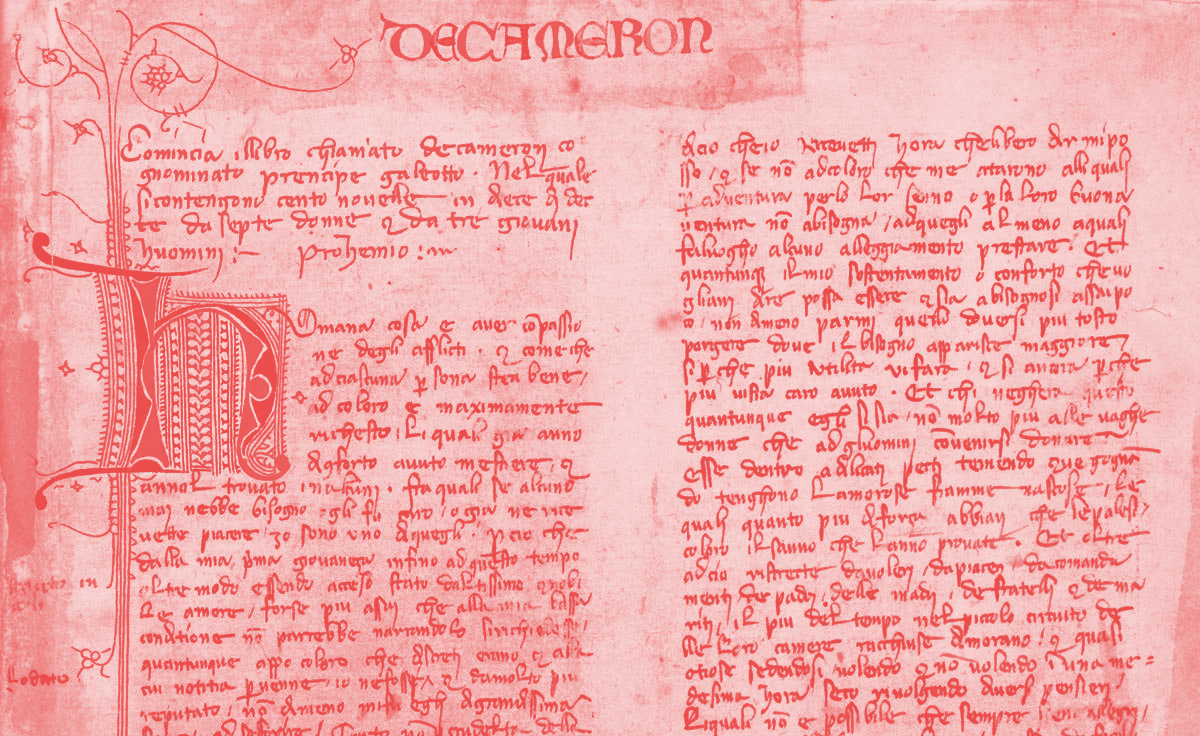 DECAMERON
Comincia illibro chiamato decameron co
gnominato prencipe galeotto. Nel quale
si contengono cento novelle in dece dì dec
te da septe donne & da tre giovani
huomini :~ Prohemio :~
Umana cosa e aver cōpassio
ne degli afflicti. & come che
ad ciascuna p sona stea bene /
ad coloro e maximamente
richesto / li quali gia anno
di conforto avuto mestiere / &
annol trovato in alcuni. fra quali se alcuno
mai nebbe bisogno o gli fu caro / o gia ne rice
vette piacere / io sono uno di quegli. p cio che
dalla mia pma giovaneza infino ad questo tempo
oltre modo essendo acceso stato daltissimo & nobi
le amore / forse piu assai che alla mia bassa
conditione nō parrebbe narrandolo si richiedesse /
quantunque appo coloro che discreti erano & alla
cui notitia pvenne / io ne fosse & damolto piu
reputato / nō dimeno mi fu egli di grandissima
dicio che io ricevetti hora che libero dir mi po
sso / & se nō ad coloro che me atarono alli quali
p adventura per lo lor senno o p la loro buona
ventura nō abisogna / ad quegli al meno a quali
fa luogho alcuno alleggiamento prestare. Et
quantunque il mio sostentamento o conforto che vo
gliam dire possa essere & sia a bisognosi assai po
co / non dimeno parmi quello doversi piu tosto
porgere dove il bisogno apparisce maggiore /
si pche piu utilita vi fara & si ancora pche
piu vi fia caro avuto. Et chi neghera questo
quantunque egli si sia / nō molto piu alle vaghe
donne che ad gluomini cōvenirsi donare
Esse dentro a dilicati petti temendo & vergogna
do tenghono lamorose fiamme nascose / le
quali quanto piu di forza abbian che le palesi
coloro il sanno che lanno provate. Et oltre
ad cio ristrecte da voleri / da piaceri da comanda
menti de padri / delle madri / de fratelli & de ma
riti / il piu del tempo nel piccolo circuito de
lle loro camere racchiuse dimorano / & quasi
otiose sedendosi volendo & nō volendo in una me=
desima hora seco rivolgendo diversi pensieri /
li quali nō e possibile che sempre sieno allegri /